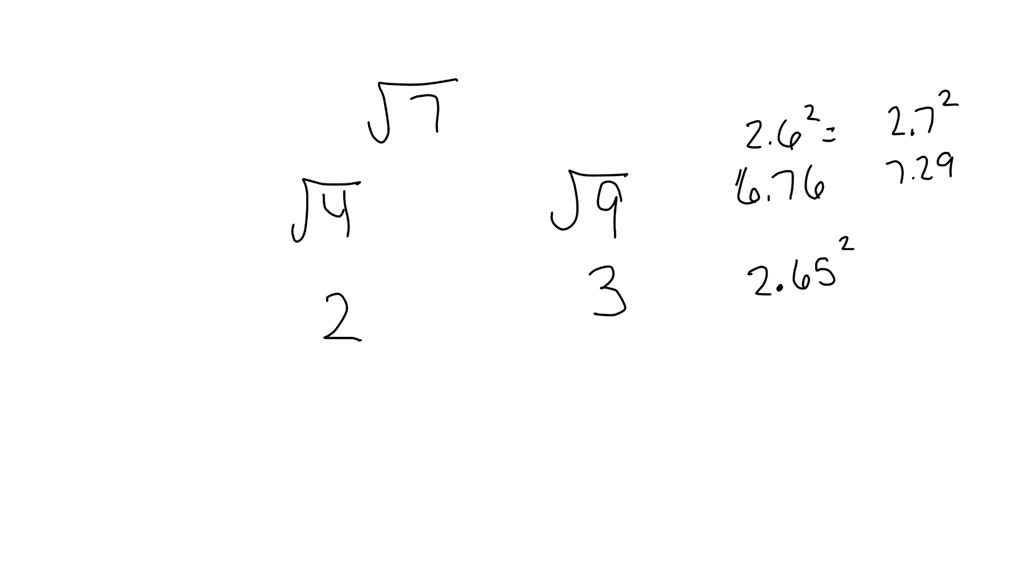 √7
√4 √9
2 3
2.6² = 2.7²
6.76 7.29
2.65²